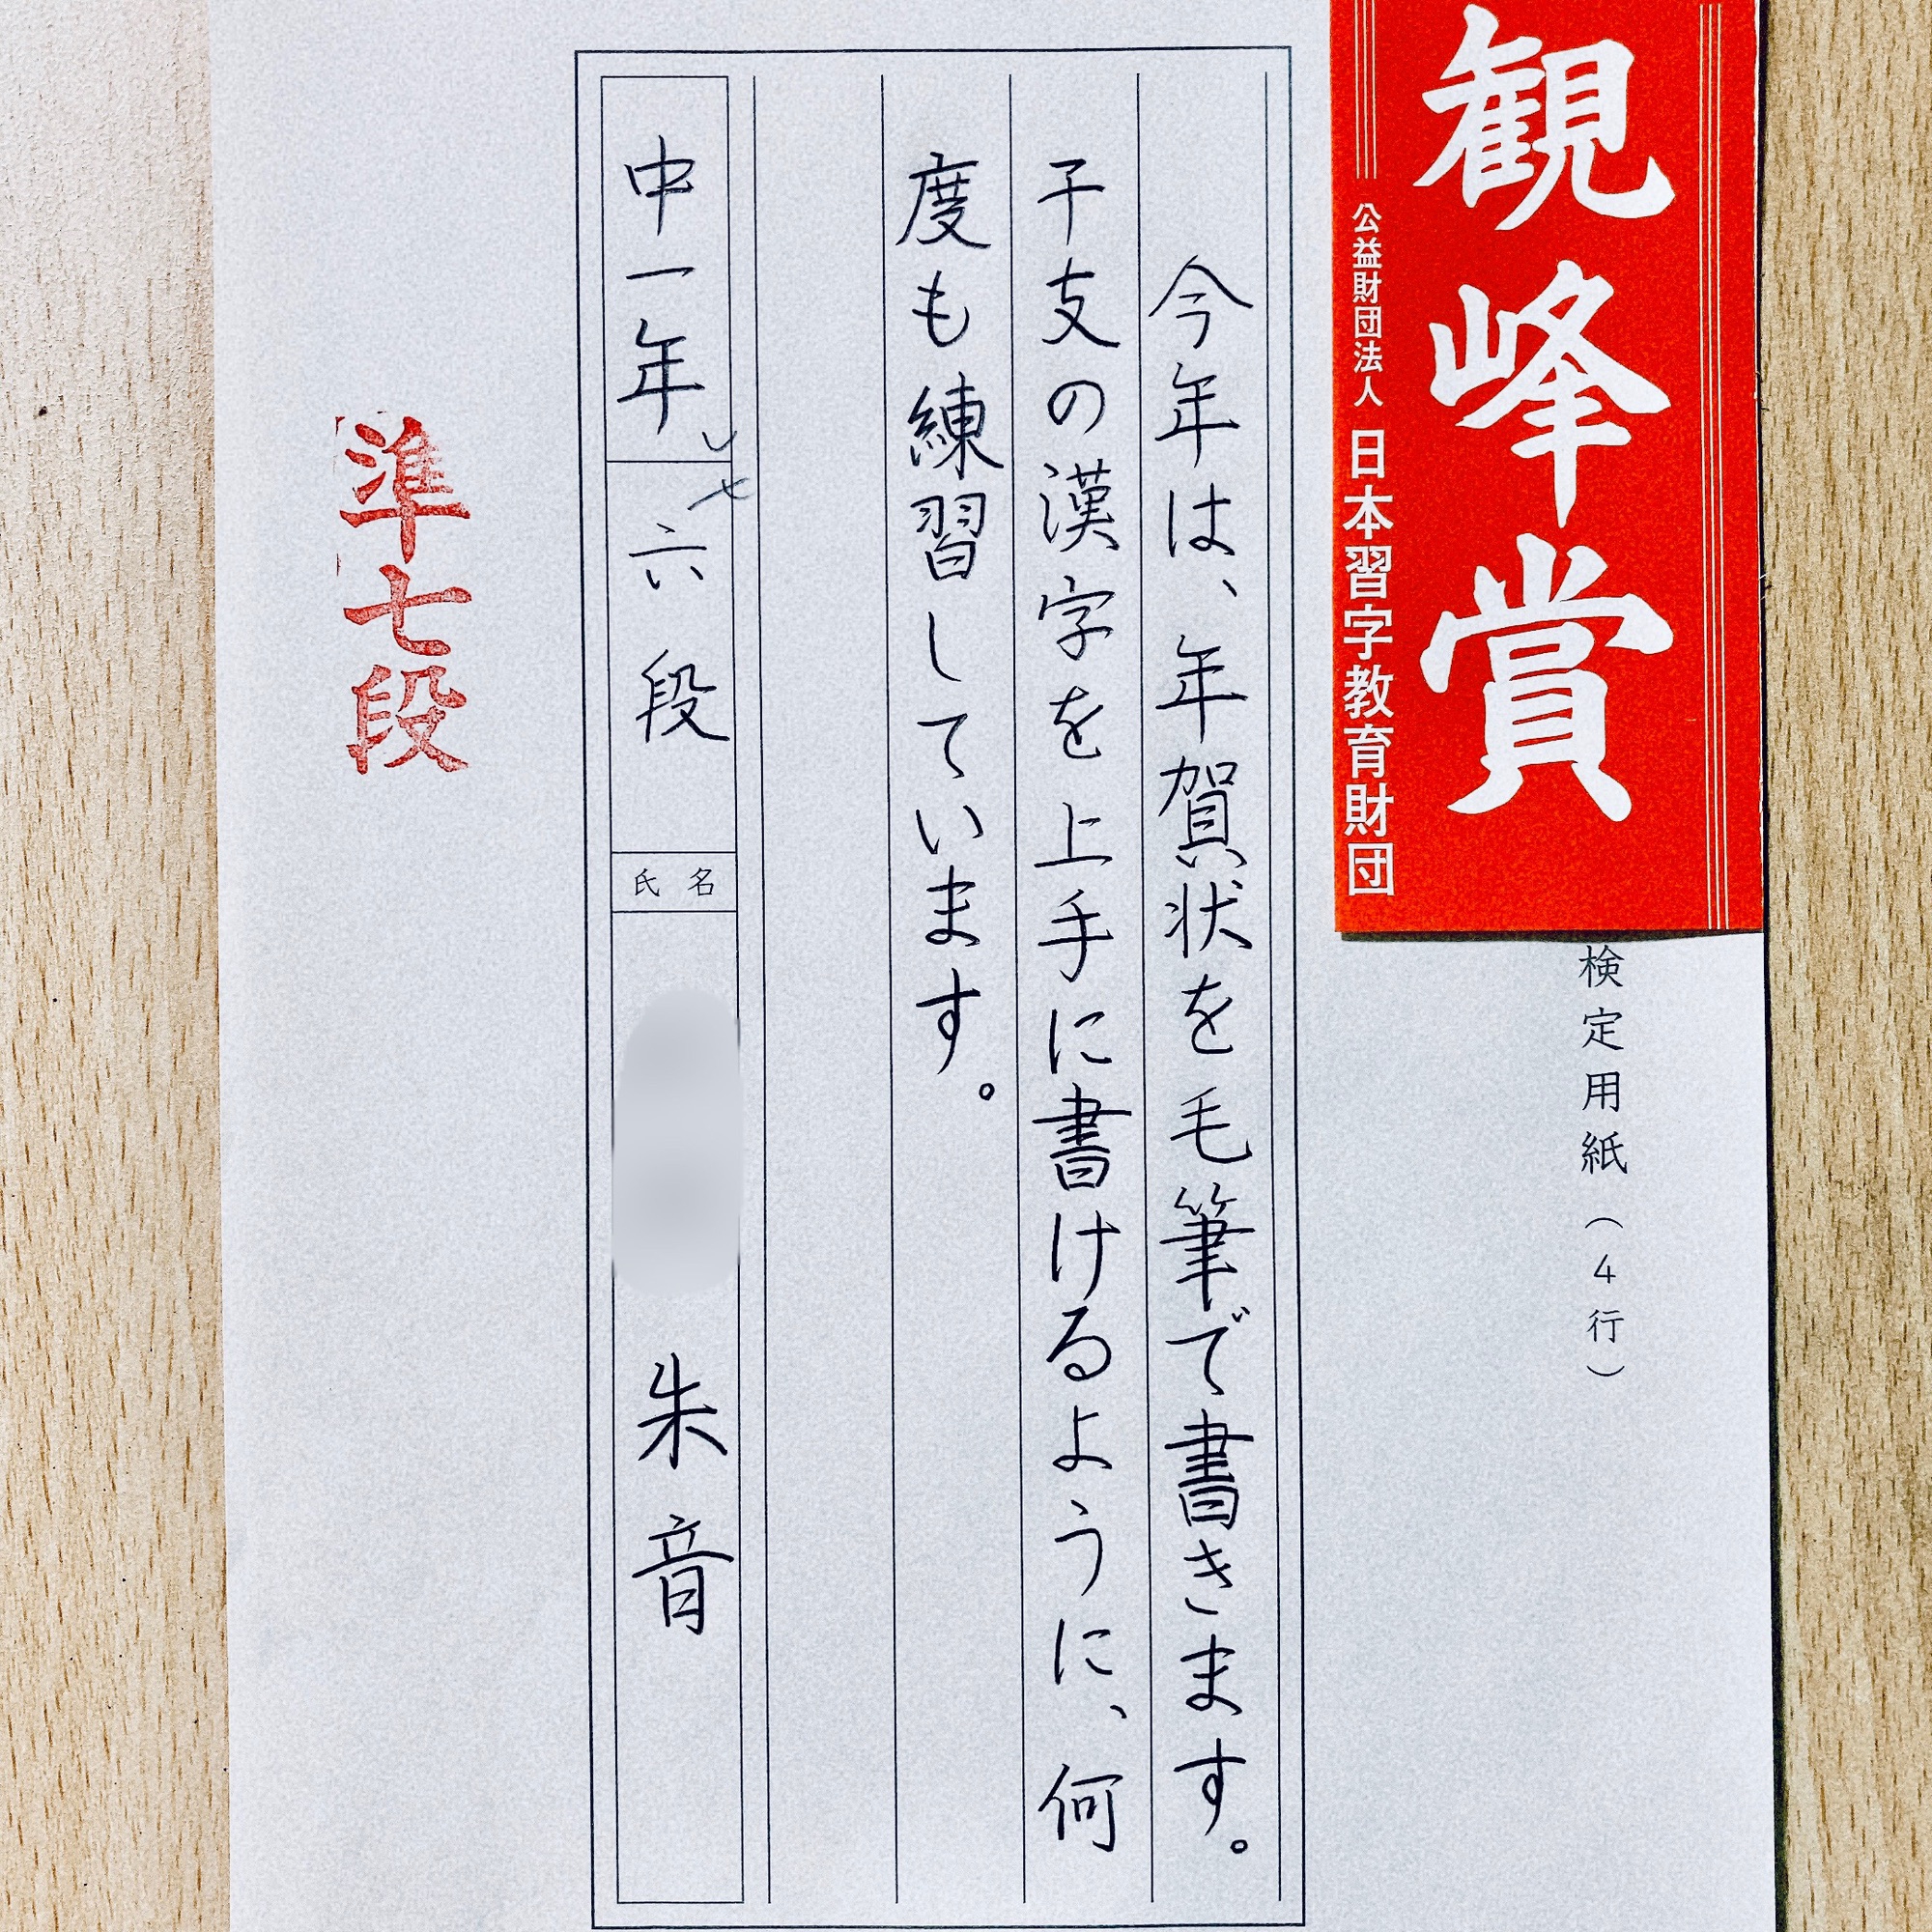 観峰賞
公益財団法人 日本習字教育財団
検定用紙(4行)
今年は、年賀状を毛筆で書きます。
干支の漢字を上手に書けるように、何
度も練習しています。
中一年 六段 氏名 朱音
準七段